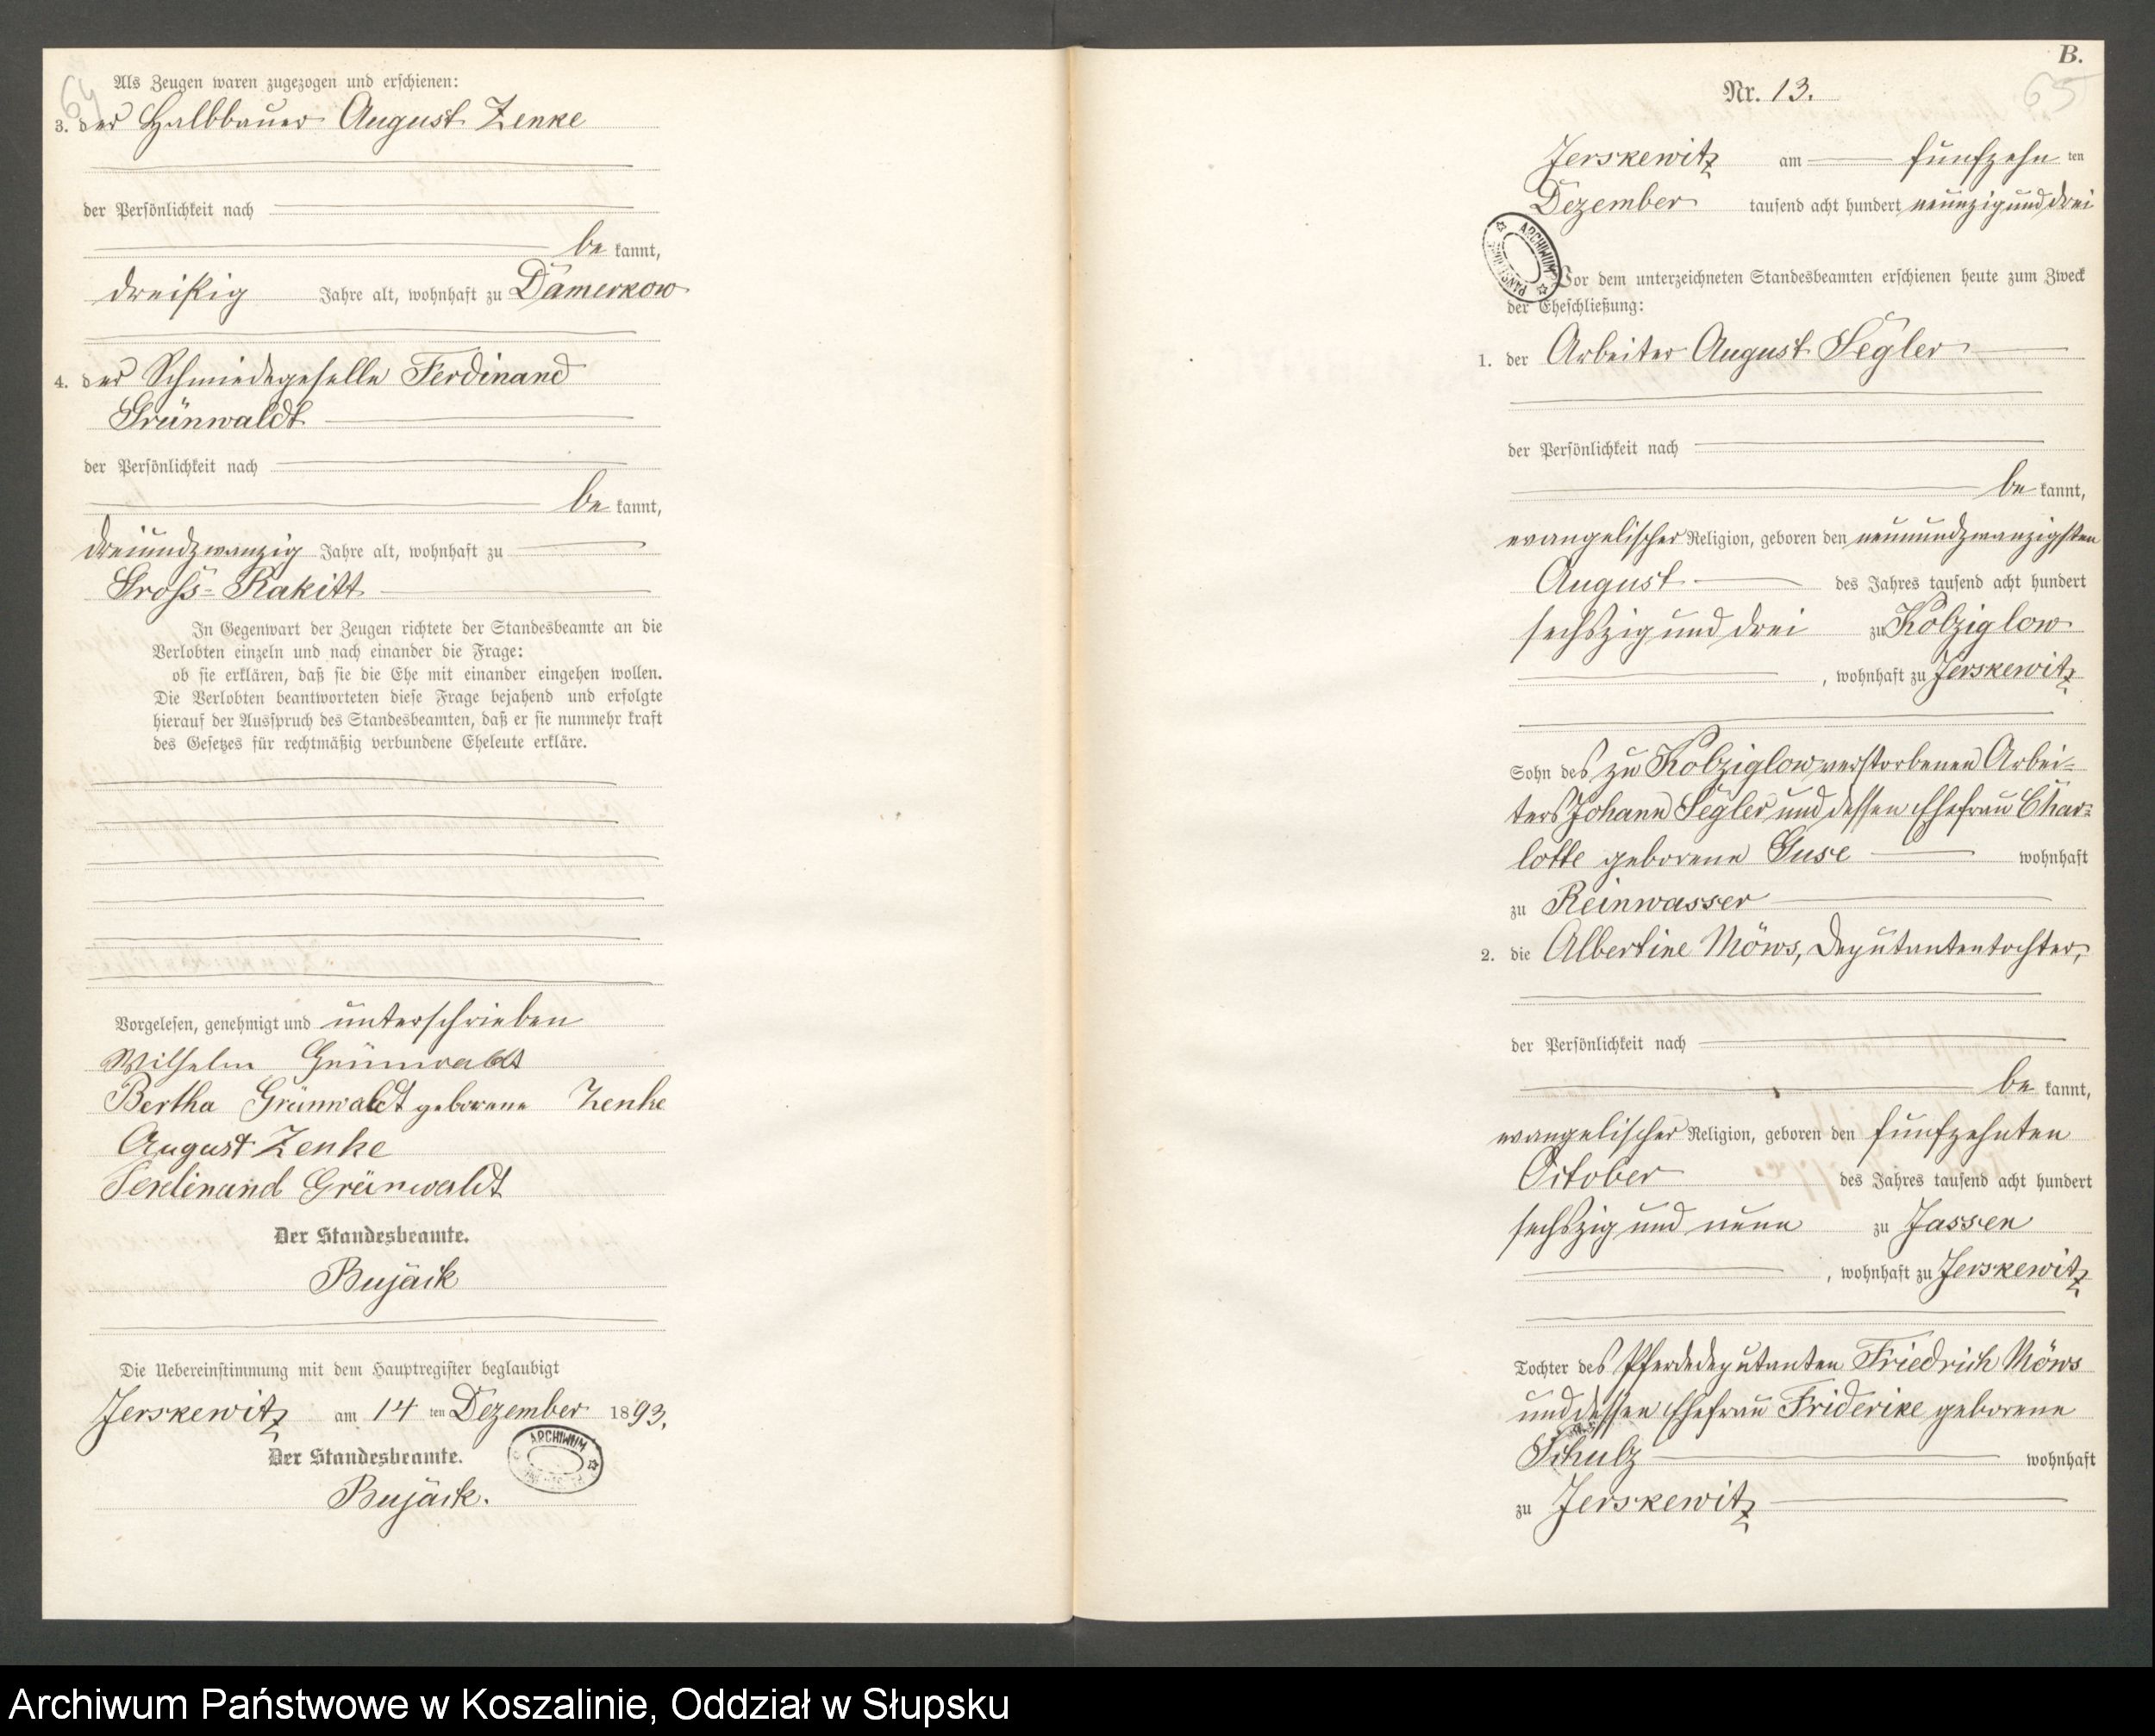 64
Als Zeugen waren zugezogen und erschienen:
3. der Halbbauer August Zenke
der Persönlichkeit nach
be kannt,
dreißig Jahre alt, wohnhaft zu Damerkow
4. der Schmiedegeselle Ferdinand
Grünwaldt
der Persönlichkeit nach
be kannt,
dreiundzwanzig Jahre alt, wohnhaft zu
Gross-Rakitt
In Gegenwart der Zeugen richtete der Standesbeamte an die
Verlobten einzeln und nach einander die Frage:
ob sie erklären, daß sie die Ehe mit einander eingehen wollen.
Die Verlobten beantworteten diese Frage bejahend und erfolgte
hierauf der Ausspruch des Standesbeamten, daß er sie nunmehr kraft
des Gesetzes für rechtmäßig verbundene Eheleute erkläre.
Vorgelesen, genehmigt und unterschrieben
Wilhelm Grünwaldt
Bertha Grünwaldt geborene Zenke
August Zenke
Ferdinand Grünwaldt
Der Standesbeamte.
Bujack
Die Uebereinstimmung mit dem Hauptregister beglaubigt
Jerskewitz am 14 ten Dezember 1893.
Der Standesbeamte.
ARCHIWUM
Bujack.
B.
65
Nr. 13.
Jerskewitz am fünfzehn ten
Dezember tausend acht hundert neunzig und drei
ARCHIWUM
Vor dem unterzeichneten Standesbeamten erschienen heute zum Zweck
der Eheschließung:
1. der Arbeiter August Segler
der Persönlichkeit nach
be kannt,
evangelischer Religion, geboren den neunundzwanzigsten
August des Jahres tausend acht hundert
sechszig und drei zu Kolziglow
, wohnhaft zu Jerskewitz
Sohn des zu Kolziglow verstorbenen Arbei-
ters Johann Segler und dessen Ehefrau Char-
lotte geborene Guse wohnhaft
zu Reinwasser
2. die Albertine Möws, Deputantentochter,
der Persönlichkeit nach
be kannt,
evangelischer Religion, geboren den fünfzehnten
October des Jahres tausend acht hundert
sechszig und neun zu Jassen
, wohnhaft zu Jerskewitz
Tochter des Pferdedeputanten Friedrich Möws
und dessen Ehefrau Friderike geborene
Schulz wohnhaft
zu Jerskewitz
Archiwum Państwowe w Koszalinie, Oddział w Słupsku